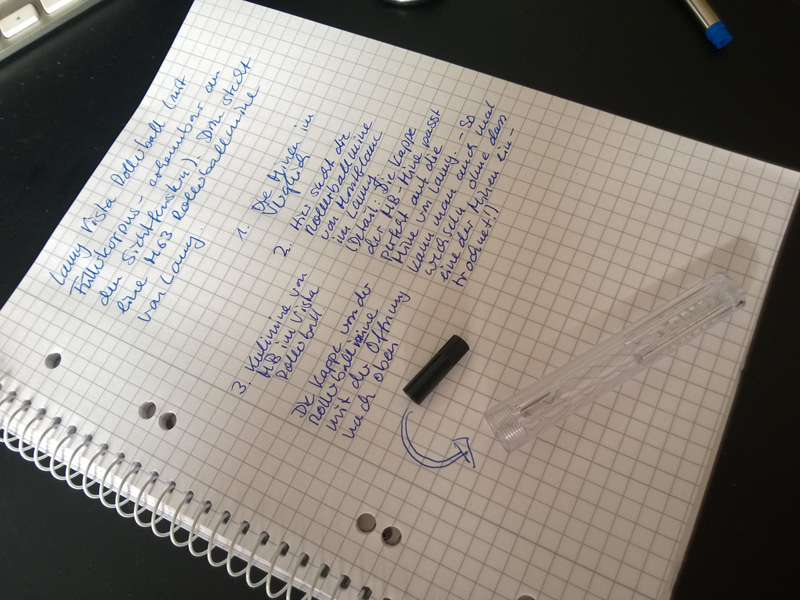 Lamy Vista Rollerball (mit
Füllkorpus - erkennbar an
den Sichtfenstern). Drin steckt
eine M63 Rollerballmine
von Lamy.
1. Die Minen im
Vergleich
2. Hier steckt die
Rollerballmine
von Montblanc
im Lamy
(Detail: Die Kappe
der MB-Mine passt
perfekt auf die
Mine von Lamy. - So
kann man auch mal
wechseln ohne dass
eine der Minen ein-
trocknet!)
3. Kulimine von
MB im Vista
Rollerball
Die Kappe von der
Rollerballmine
mit der Öffnung
nach oben